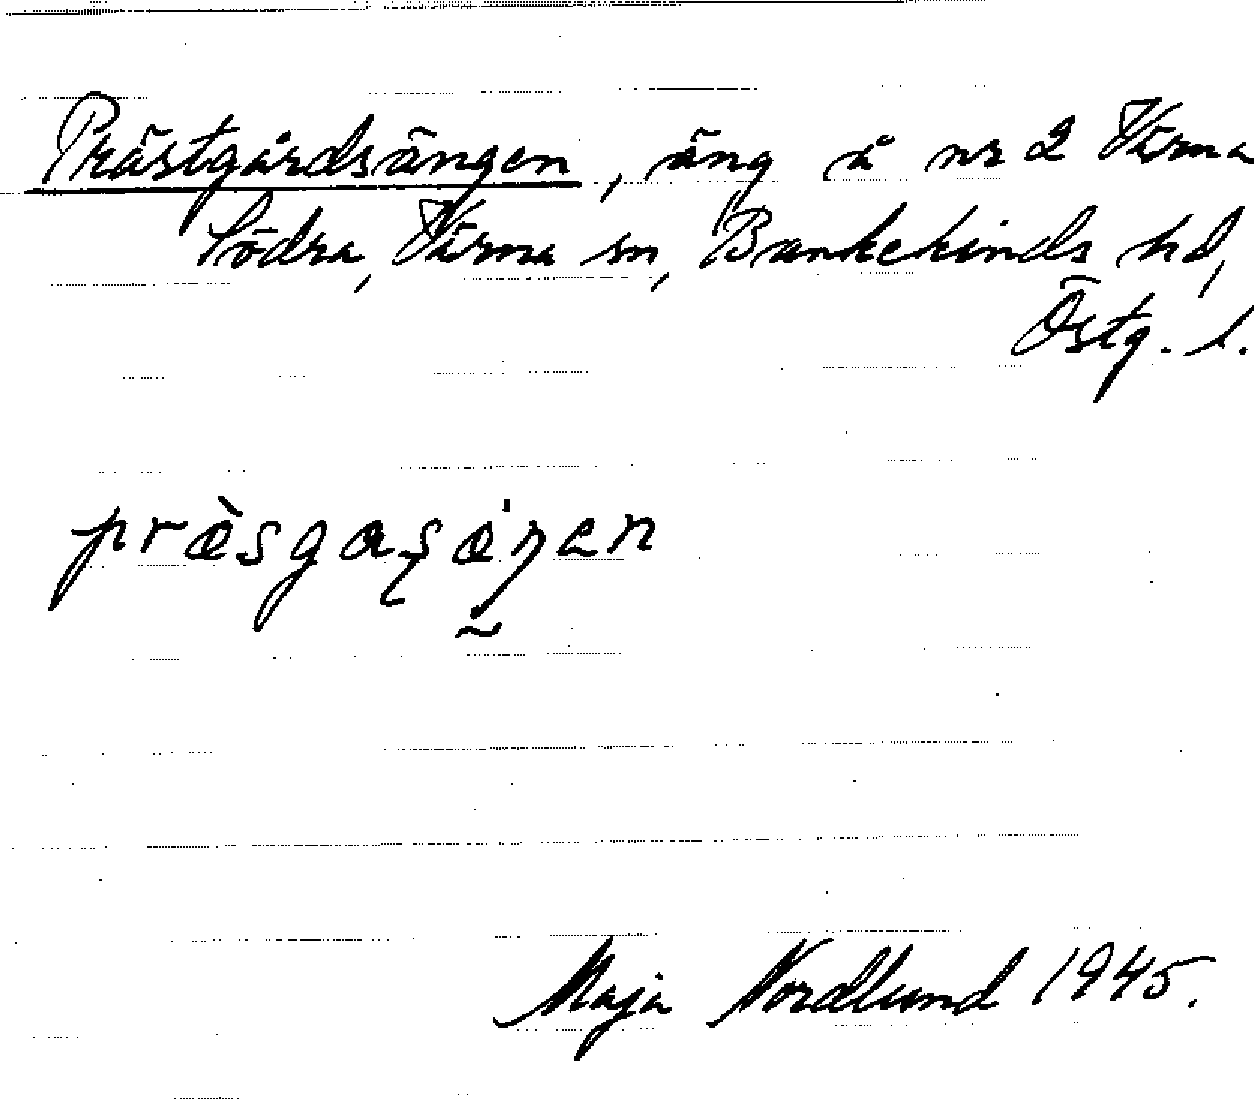 Prästgårdsängen, äng å nr 2 Värna
Södra, Värna sn, Bankekinds hd,
Östg. l.
præ̀sgaʂæ̇ŋen
Maja Nordlund 1945.